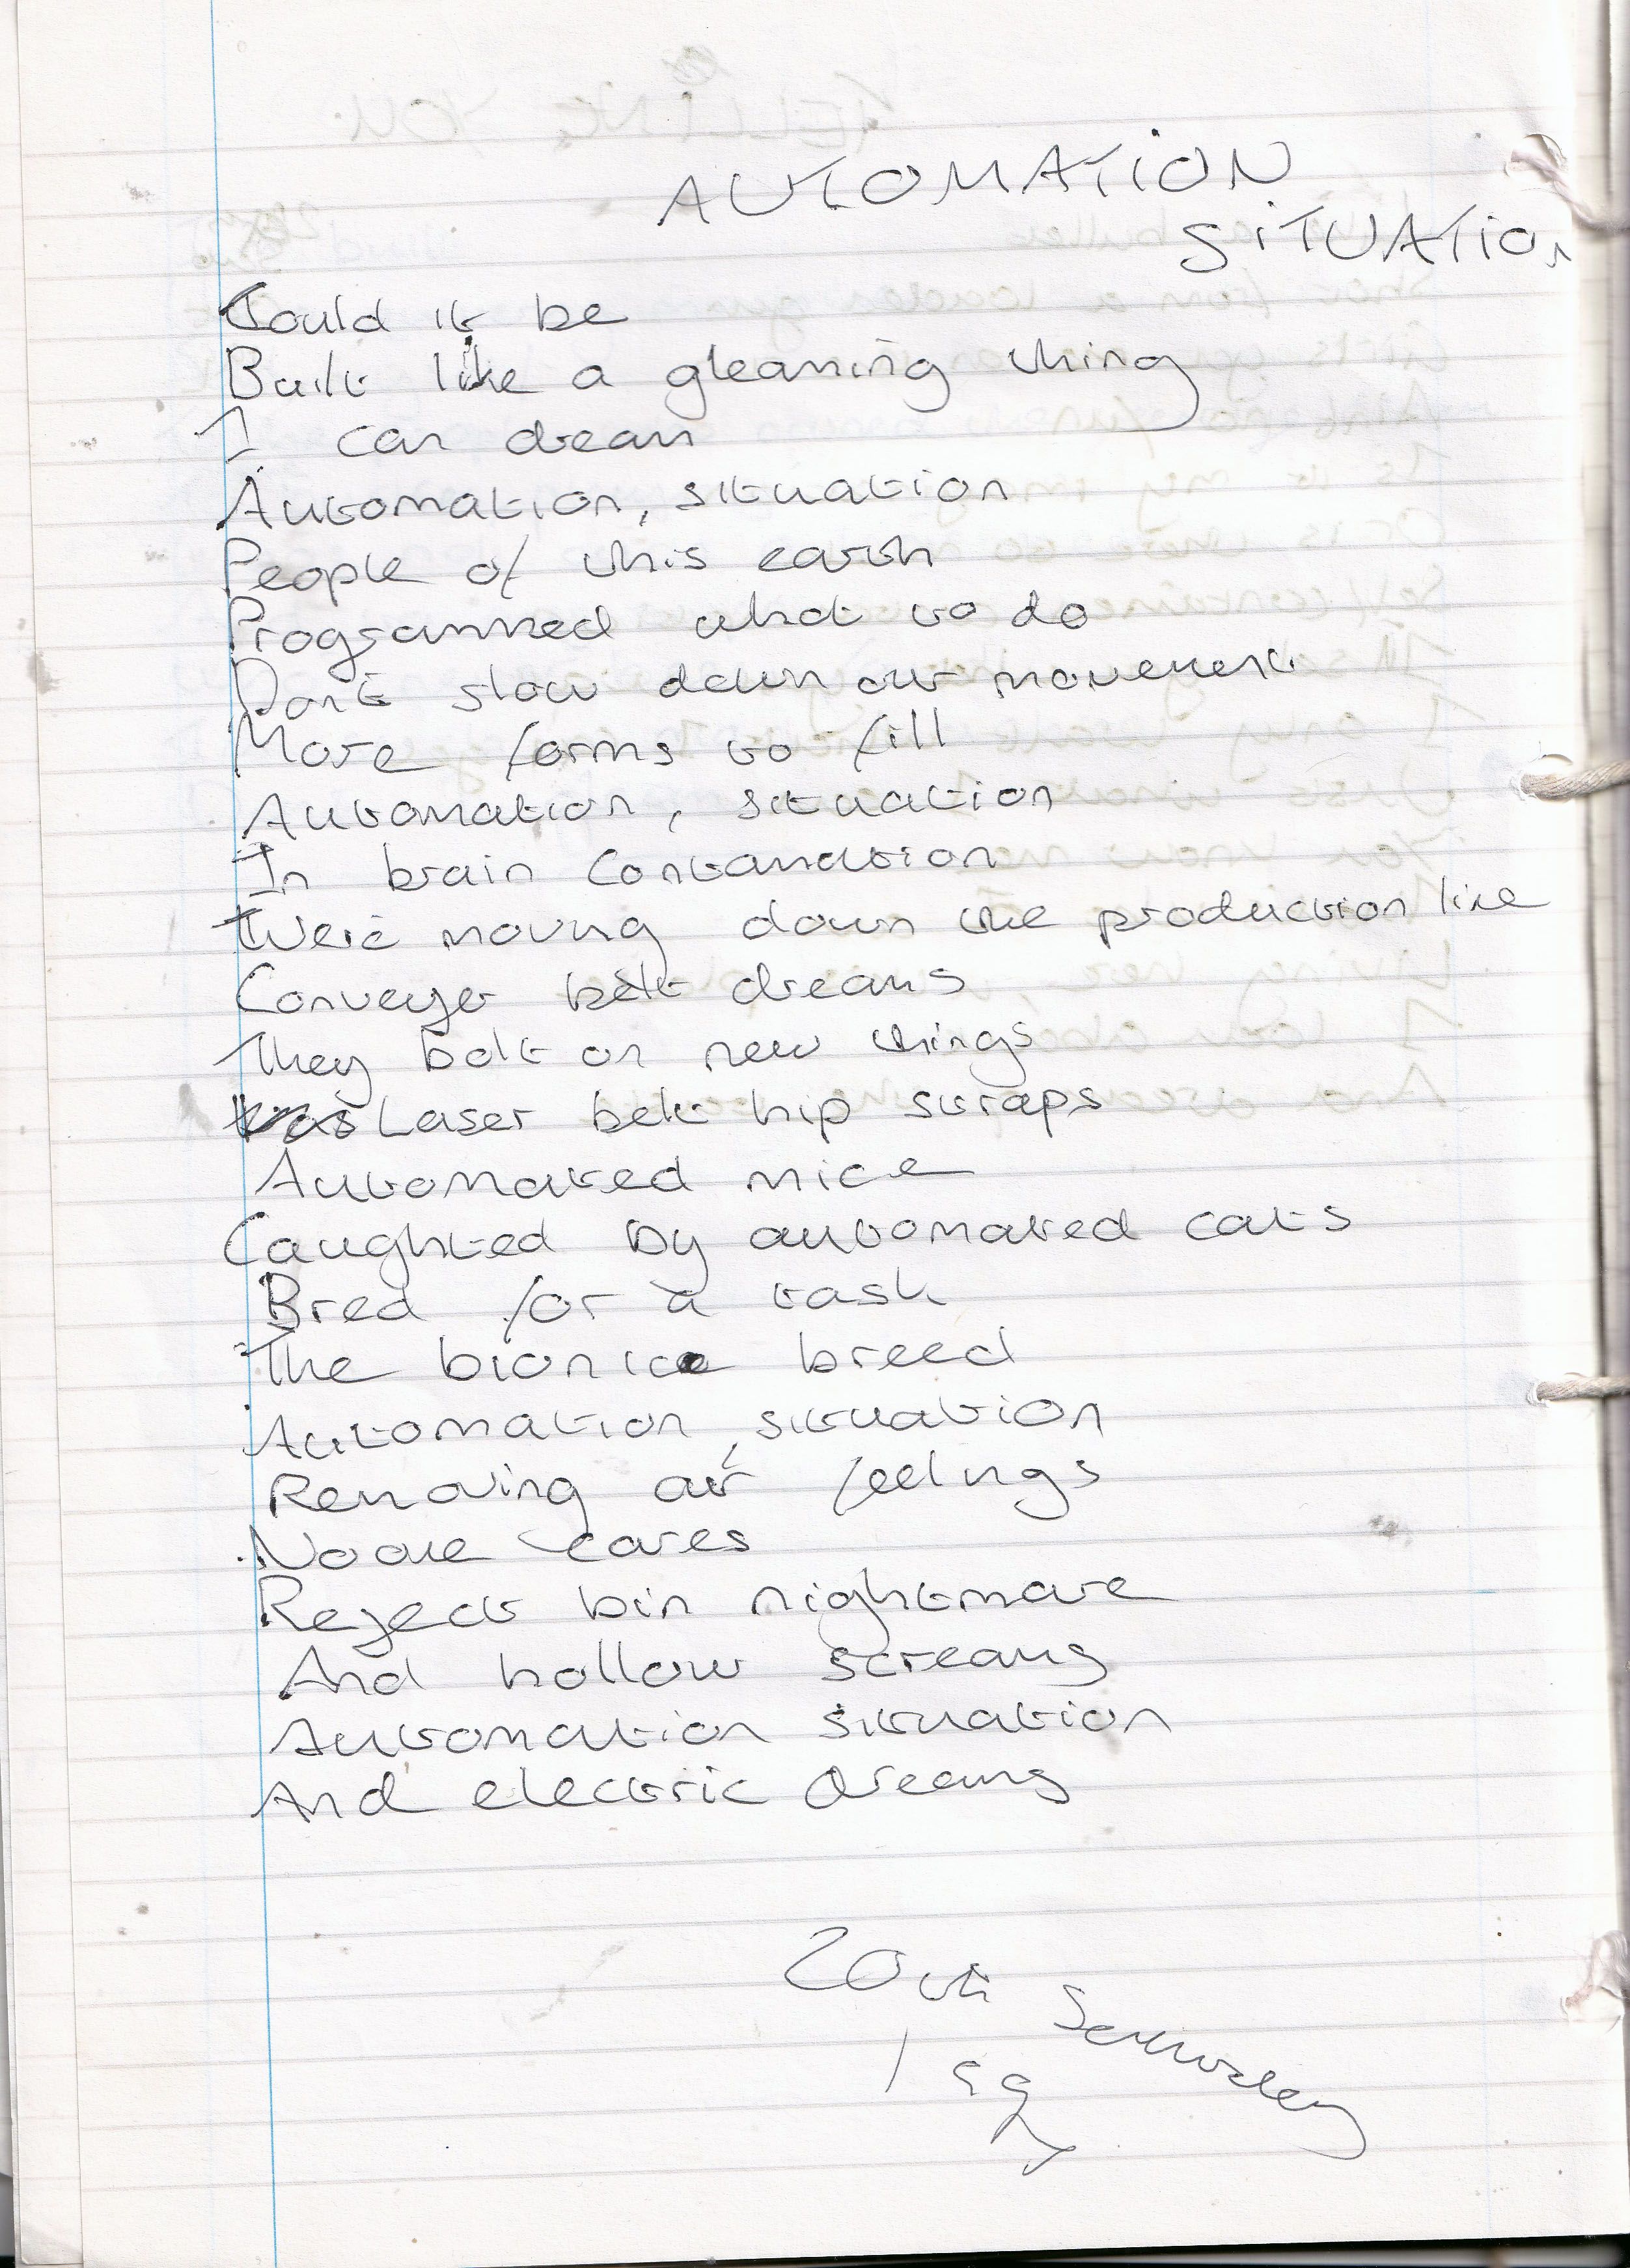 AUTOMATION
SITUATION
Could it be
Built like a gleaming thing
I can dream
Automation, situation
People of this earth
Programmed what to do
Don't slow down our movement
More forms to fill
Automation, situation
In brain contamation
We're moving down the production line
Conveyer belt dreams
They bolt on new things
Laser belt hip straps
Automated mice
Caughted by automated cats
Bred for a task
The bionic breed
Automation, situation
Removing our feelings
Noone cares
Reject bin nightmare
And hollow screams
Automation situation
And electric dreams
20th